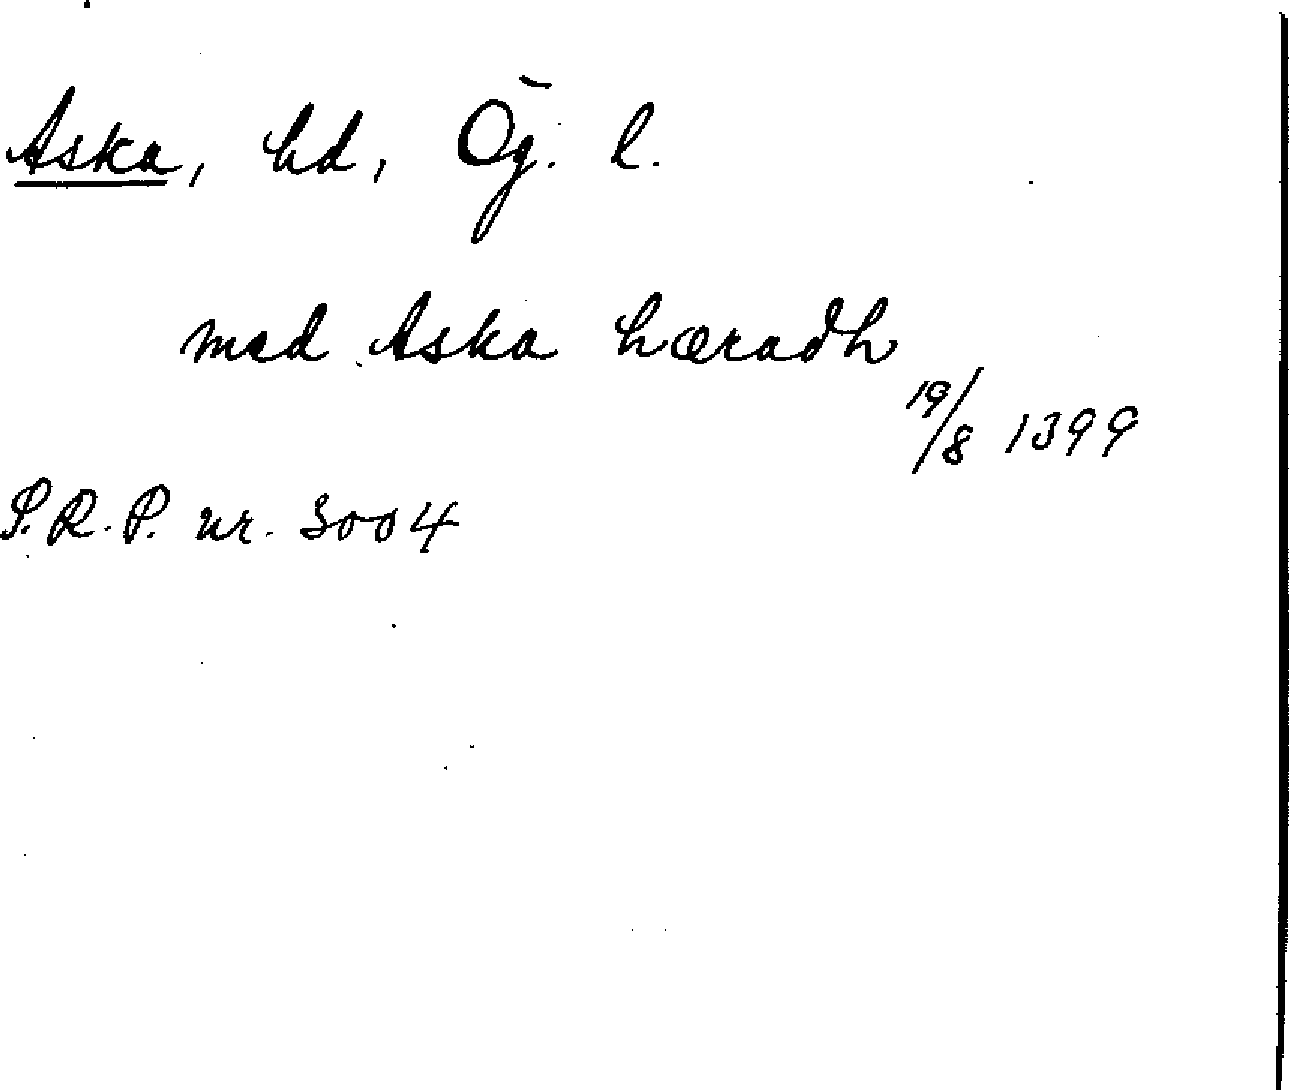 Aska, hd, Ög. l.
med Aska hæradh
19/8 1399
S.R.P. nr. 3004